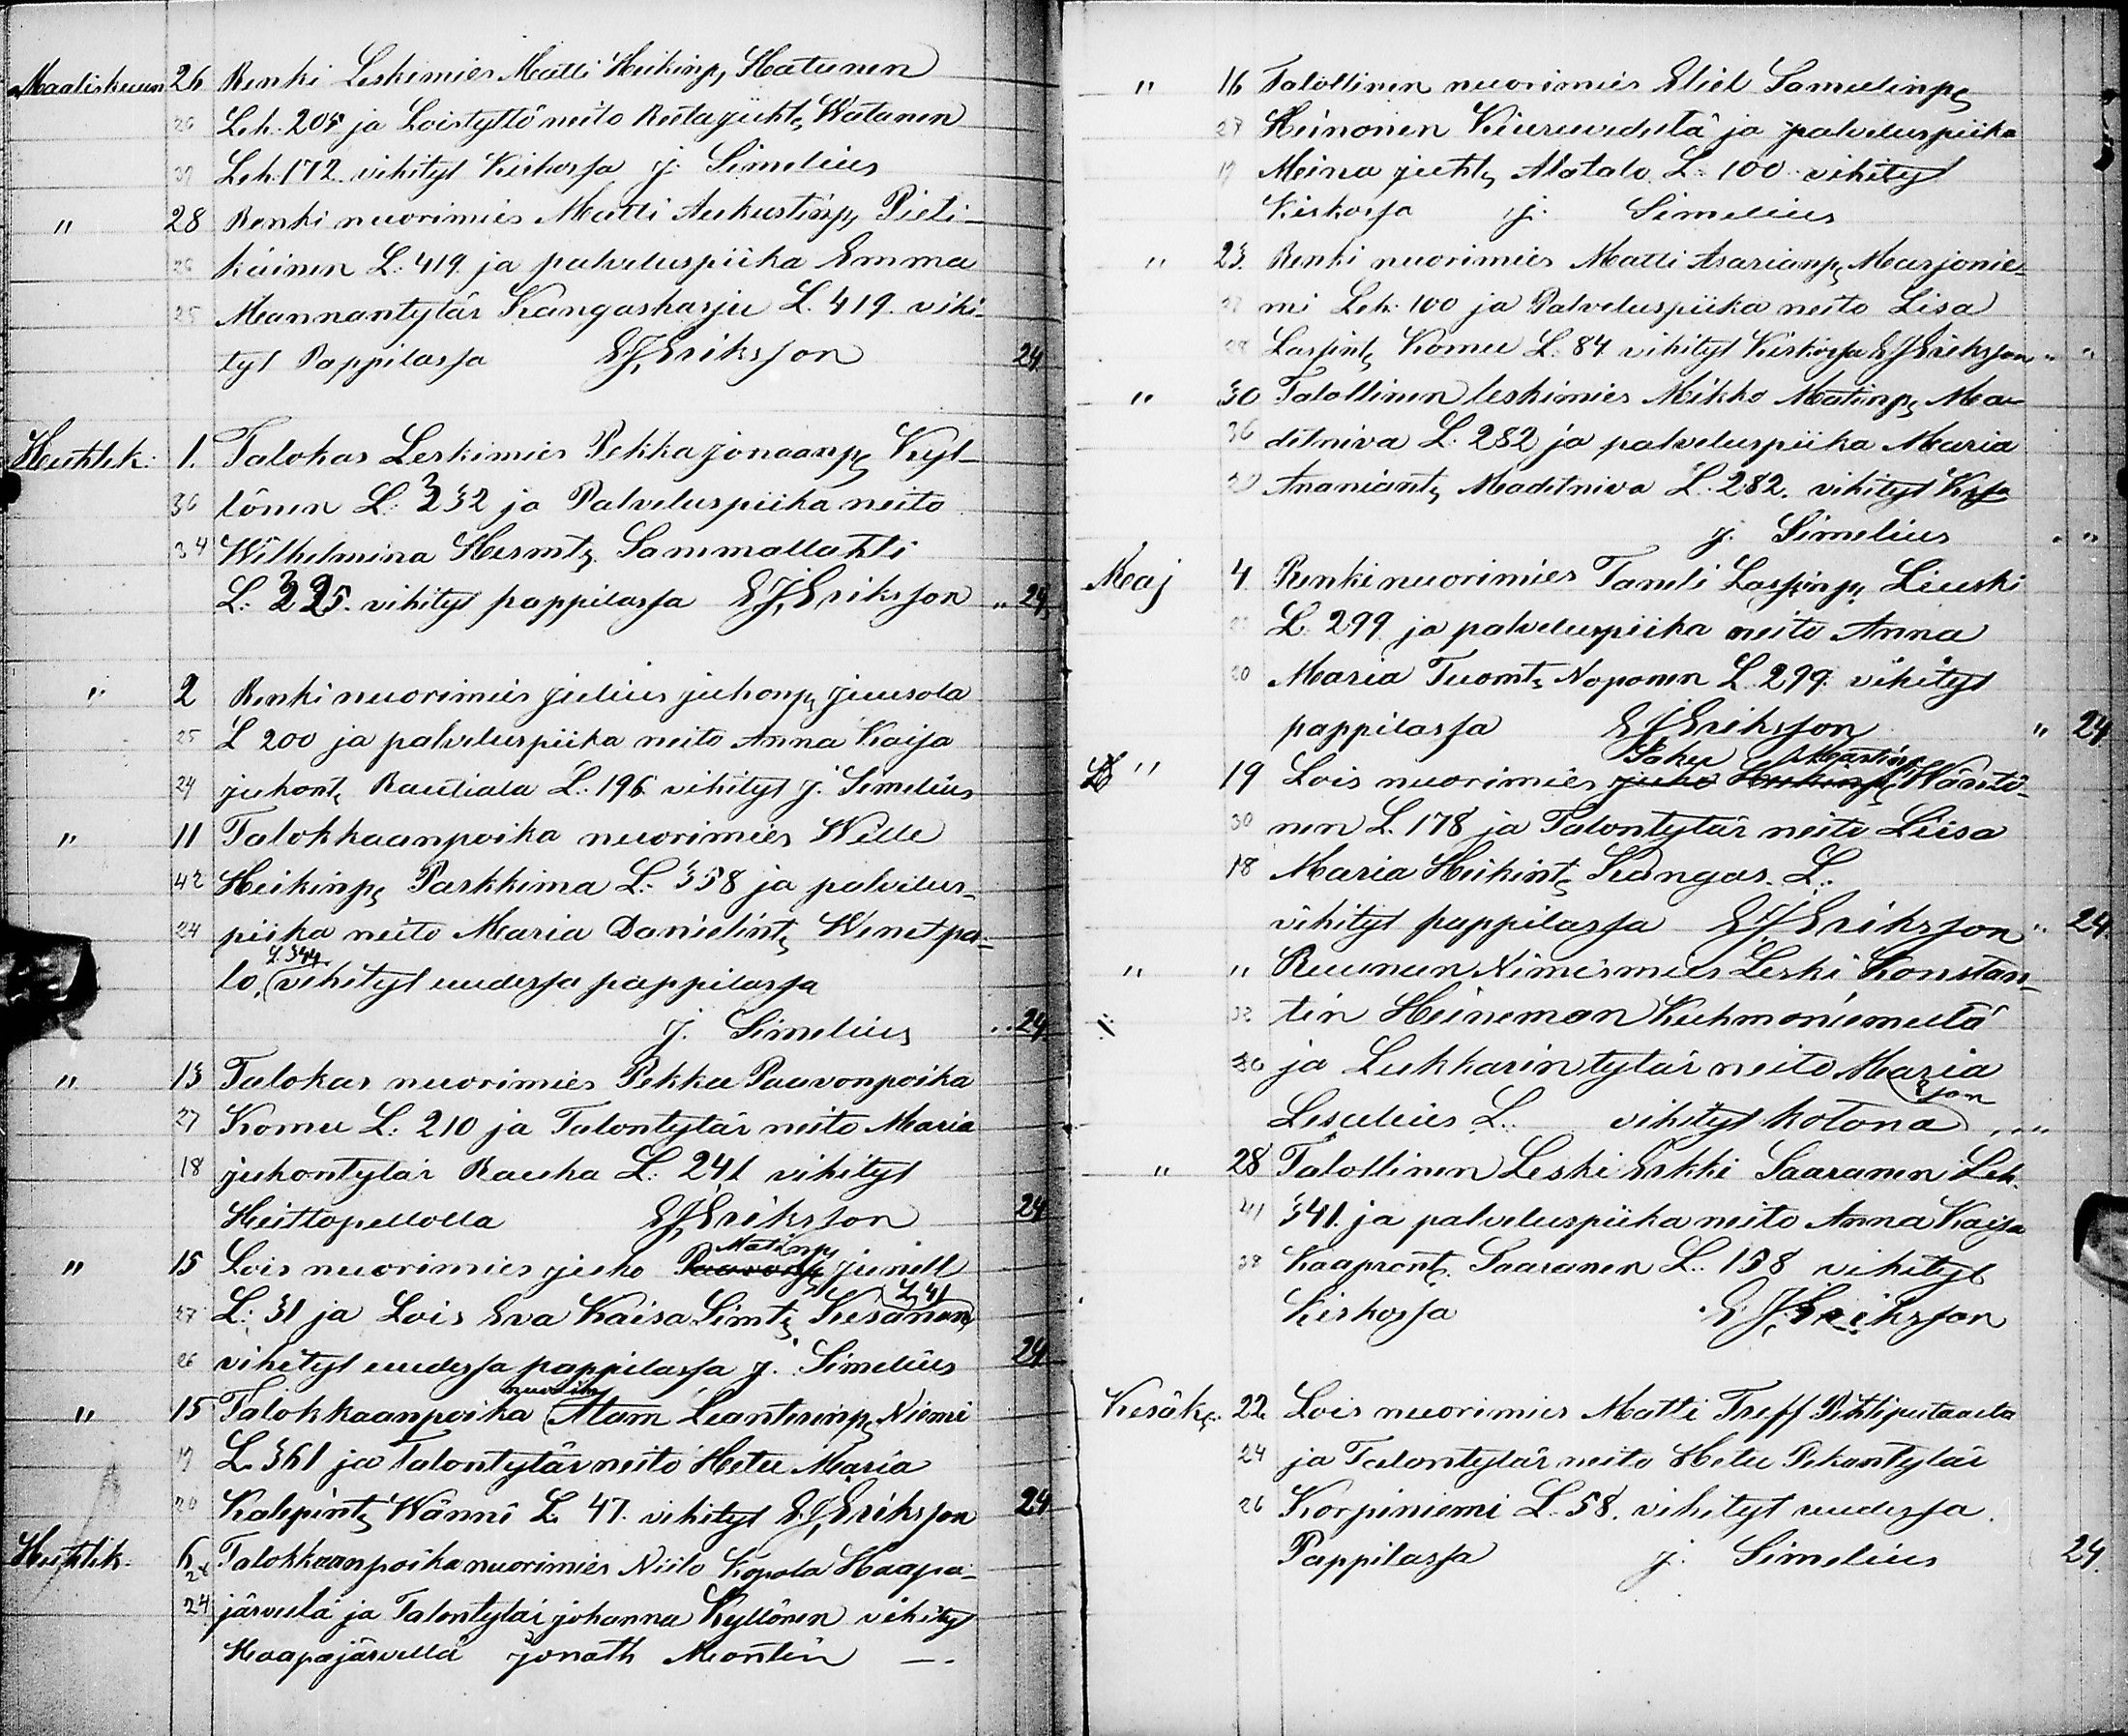 Maaliskuun 26 Renki Leskimies Matti Heikinp, Hatunen
Leh. 205 ja Loistyttö neito Reetajuht, Watanen
Leh. 172 vihityt Kirkossa J. Simelius
" 28 Renki nuorimies Matti Aukustinp, Pieti-
26 käinen L: 419. ja palveluspiika Emma
25 Mannantytär Kangasharju L. 419. vihi-
tyt Pappilassa EJEriksson 24
Huhtik. 1. Talokas Leskimies Pekka Jonaanp, Kyl-
36 lönen L: 332 ja Palveluspiika neito
34 Wilhelmina Hermt, Sammallahti
L: 325. vihityt pappilassa EJEriksson " 24
" 2 Renki nuorimies Julius Juhonp, Juusola
25 L 200 ja palveluspiika neito Anna Kaisa
24 Juhont, Rautiala L: 196 vihityt J. Simelius
" 11 Talokkaanpoika nuorimies Wille
42 Heikinp, Parkkima L: 358 ja palvelus-
24 piika neito Maria Danielint, Wenetpa-
L 344.
lo, vihityt uudessa pappilassa
J. Simelius " 24
" 13 Talokas nuorimies Pekka Paavonpoika
27 Komu L: 210 ja Talontytär neito Maria
18 Juhontytär Rauha L: 241 vihityt
Heittopellolla EJEriksson 24
Matinp,
" 15 Lois nuorimies Juho Paavonp, Junell
L. 41
27 L: 31 ja Lois Eva Kaisa Simt, Kesänen
26 vihityt uudessa pappilassa J. Simelius 24
nuorim
" 15 Talokkaanpoika Atam Leanterinp, Niemi
19 L. 361 ja Talontytär neito Hetu Maria
20 Kalepint, Wänni L. 47. vihityt EJEriksson 24
Huhtik. 6 Talokkaanpoika nuorimies Niilo Kopola Haapa-
24 järveltä ja Talontytär Johanna Kyllönen vihityt
Haapajärvellä Jonath Montin —
" 16 Talollinen nuorimies Eliel Samulinp,
27 Heinonen Kiuruvedeltä ja palveluspiika
19 Meina Juht, Alatalo L: 100 vihityt
Kirkossa J. Simelius
" 23. Renki nuorimies Matti Asarianp, Marjonie-
27 mi Leh. 100 ja Palveluspiika neito Lisa
28 Lassint, Komu L: 84 vihityt Kirkossa EJEriksson " "
" 30 Talollinen leskimies Mikko Matinp, Ma-
36 ditniva L: 282 ja palveluspiika Maria
Ananiant, Maditniva L: 282. vihityt Krssa
J. Simelius " "
Maj 4. Renki nuorimies Taneli Lassinp, Liuski
L. 299 ja palveluspiika neito Anna
20 Maria Tuomt, Noponen L 299. vihityt
pappilassa EJEriksson " 24
Saku Martinp,
" 19 Lois nuorimies Juho Heikinp, Wänti-
30 nen L. 178 ja Talontytär neito Liisa
18 Maria Heikint, Kangas. L:
vihityt pappilassa EJEriksson " 24
" " Ruunun Nimismies Leski Konstan-
32 tin Heineman Kuhmoniemeltä
30 ja Lukkarintytär neito Maria
Eson
Lesulius L. vihityt kotona " "
" 28 Talollinen Leski Erkki Saaranen Leh.
41 341. ja palveluspiika neito Anna Kaisa
28 Kaapront, Saaranen L. 158 vihityt
Kirkossa E. J. Eriksson
Kesäk. 22. Lois nuorimies Matti Treff Pihtiputaalta
24 ja Talontytär neito Hetu Pekantytär
26 Korpiniemi L. 58. vihityt uudessa.
Pappilassa J. Simelius 24.